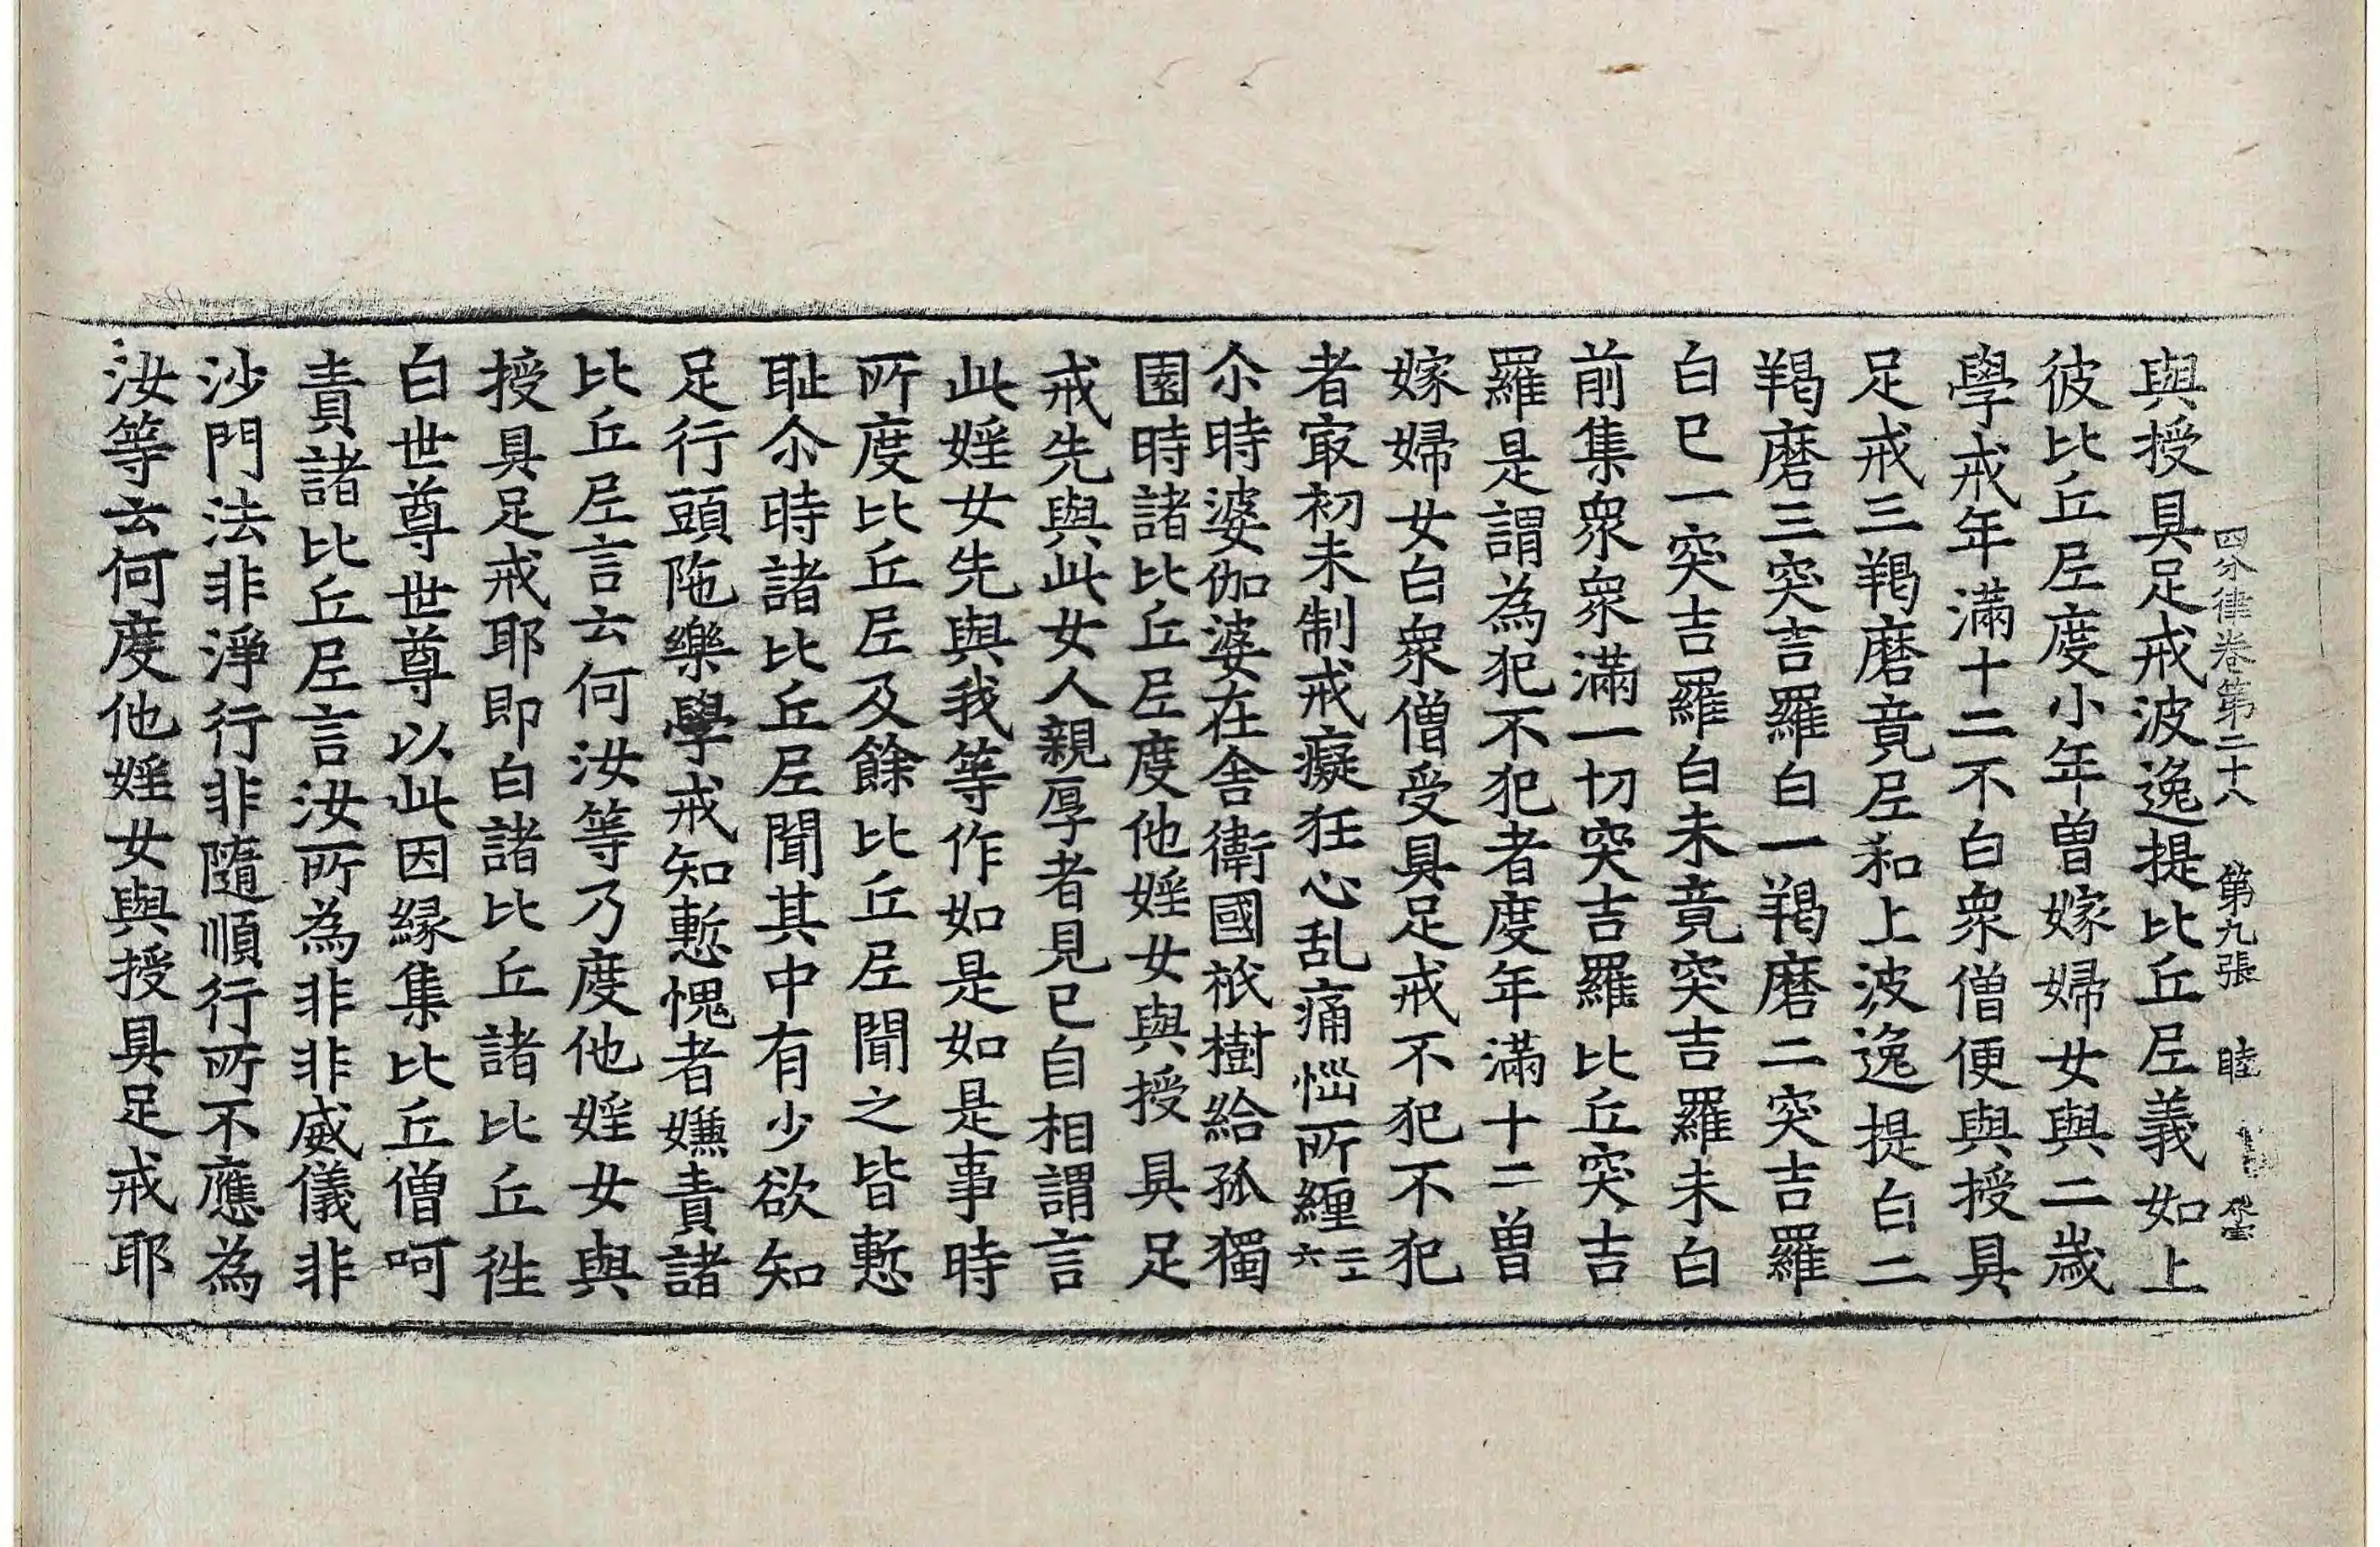 四分律卷第二十八　第九張　睦
與授具足戒波逸提比丘尼義如上
彼比丘尼度小年曾嫁婦女與二歲
學戒年滿十二不白衆僧便與授具
足戒三羯磨竟尼和上波逸提白二
羯磨三突吉羅白一羯磨二突吉羅
白已一突吉羅白未竟突吉羅未白
前集衆衆滿一切突吉羅比丘突吉
羅是謂為犯不犯者度年滿十二曾
嫁婦女白衆僧受具足戒不犯不犯
者冣初未制戒癡狂心乱痛惱所纏二十六
尒時婆伽婆在舍衛國祇樹給孤獨
園時諸比丘尼度他婬女與授具足
戒先與此女人親厚者見已自相謂言
此婬女先與我等作如是如是事時
所度比丘尼及餘比丘尼聞之皆慙
耻尒時諸比丘尼聞其中有少欲知
足行頭陁樂學戒知慙愧者嫌責諸
比丘尼言云何汝等乃度他婬女與
授具足戒耶即白諸比丘諸比丘徃
白世尊世尊以此因緣集比丘僧呵
責諸比丘尼言汝所為非非威儀非
沙門法非淨行非隨順行所不應為
汝等云何度他婬女與授具足戒耶